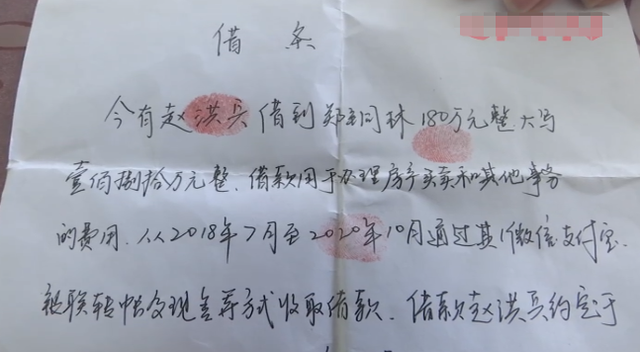 借条
今有赵洪兵借到郑同林180万元整大写
壹佰捌拾万元整、借款用于办理房产买卖和其他事务
的费用、从2018年7月至2020年10月通过其微信支付宝、
银联转帐及现金等方式收取借款、借款赵洪兵约定于